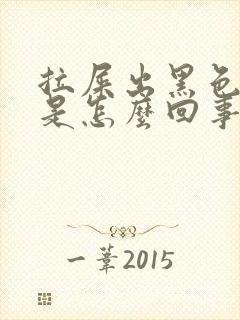 拉屎出黑色
是怎麼回事
一葦2015